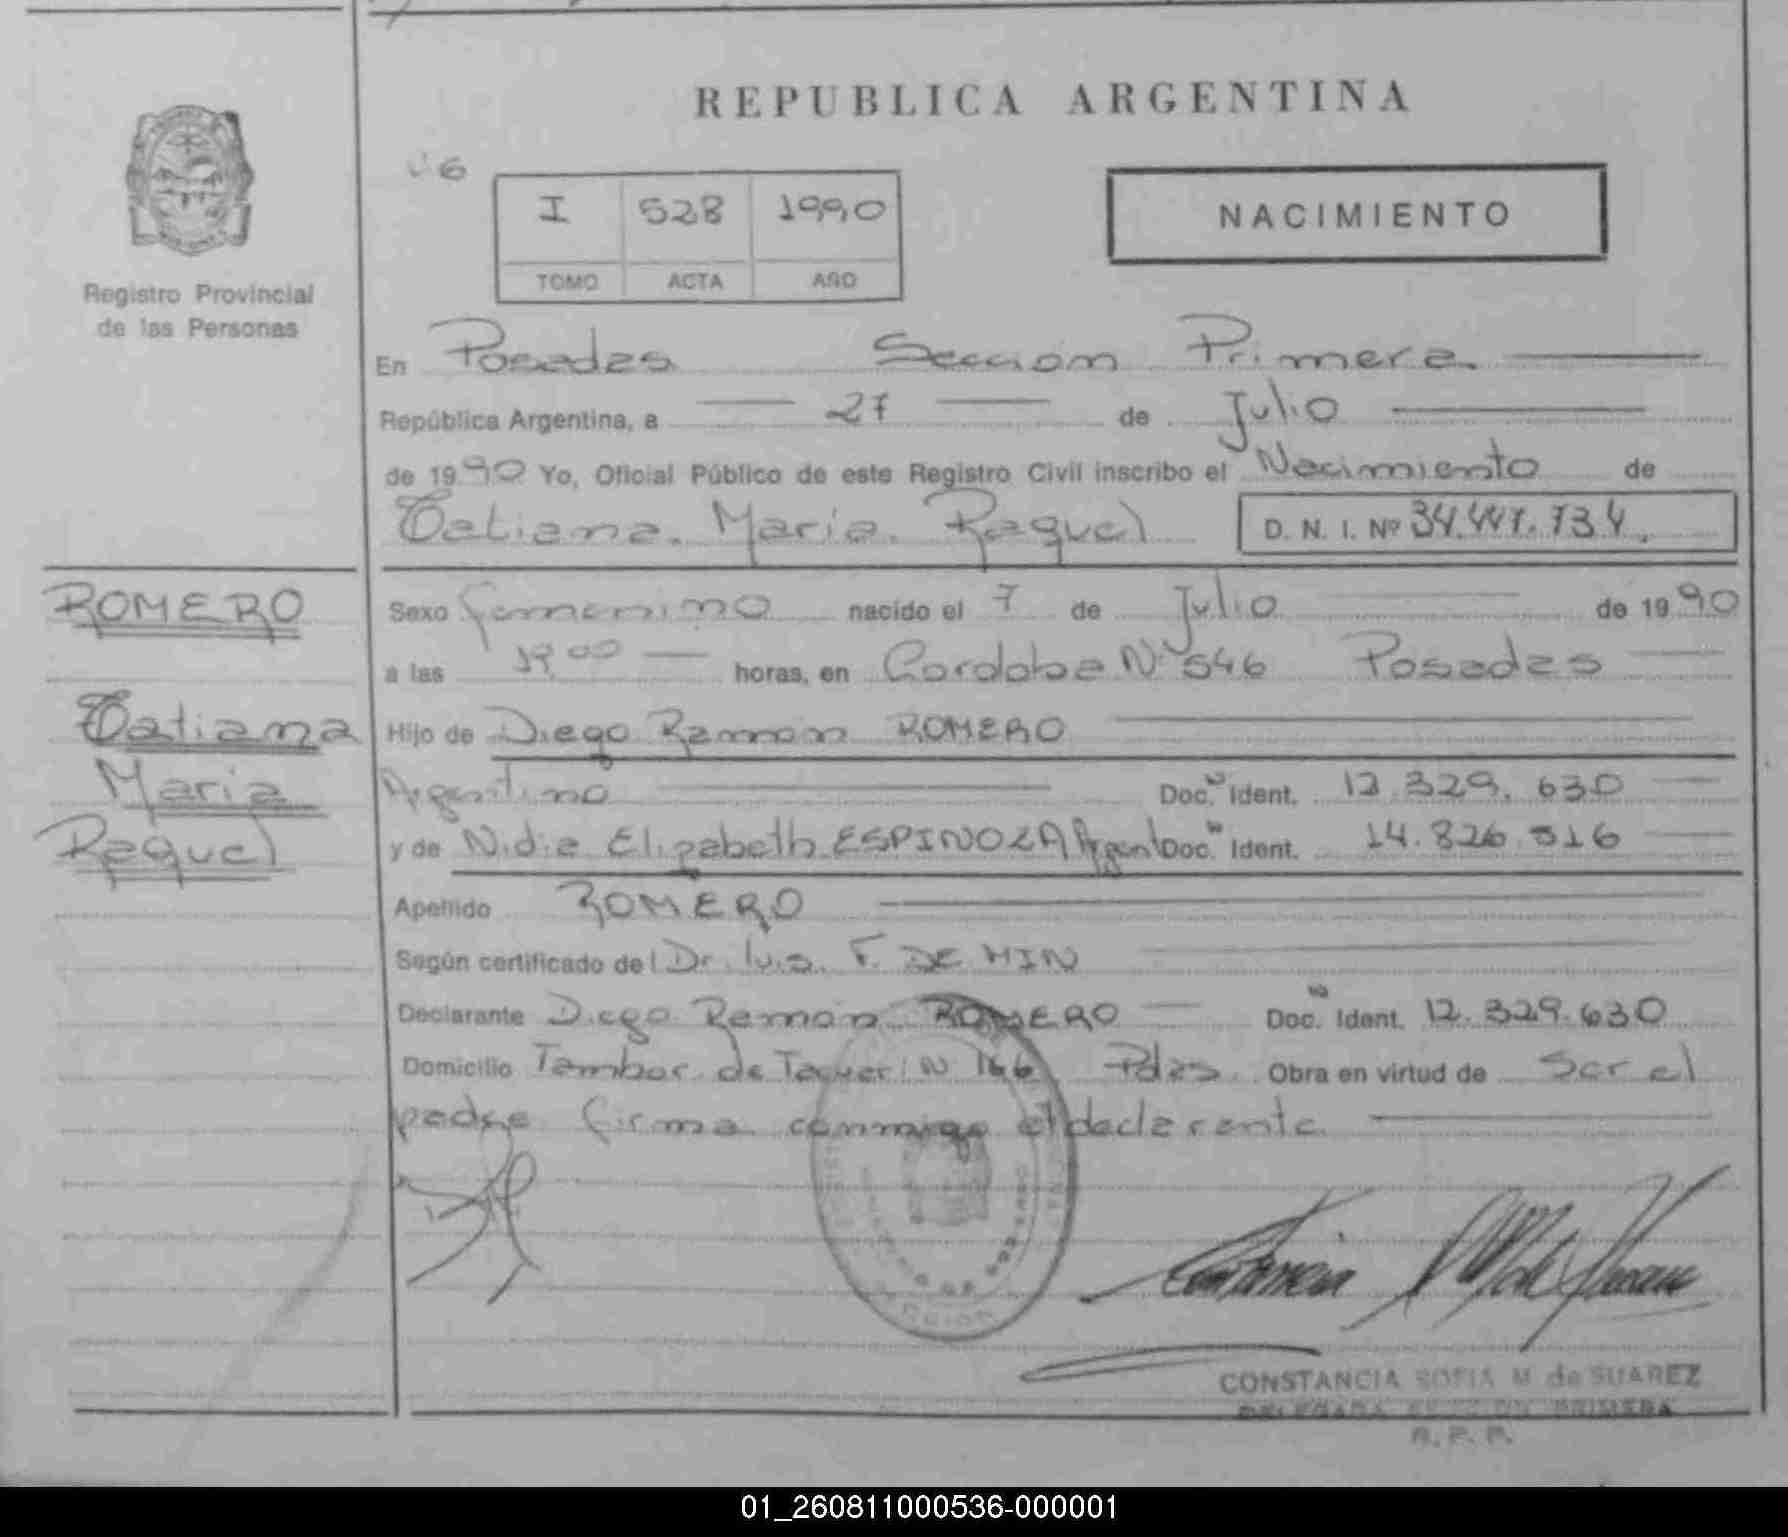 REPUBLICA ARGENTINA
Registro Provincial
de las Personas
I 528 1990
TOMO ACTA AÑO
NACIMIENTO
En Posadas Sección Primera
República Argentina, a 27 de Julio
de 1990 Yo, Oficial Público de este Registro Civil inscribo el Nacimiento de
Tatiana Maria Raquel D. N. I. Nº 34.447.734
ROMERO
Tatiana
Maria
Raquel
Sexo femenino nacido el 7 de Julio de 1990
a las horas, en Cordoba Nº 546 Posadas
Hijo de Diego Ramon ROMERO
Argentino Doc. Ident. 12.329.630
y de Nidia Elizabeth ESPINOZA Argent Doc. Ident. 14.826.516
Apellido ROMERO
Según certificado del Dr. Luis F. DE MIN
Declarante Diego Ramón ROMERO Doc. Ident. 12.329.630
Domicilio Tambor de Tacuari N 166 Pdas Obra en virtud de Ser el
padre firma conmigo el declarante
CONSTANCIA SOFIA M. de SUAREZ
DELEGADA SECCION PRIMERA
R. P. P.
01_260811000536-000001